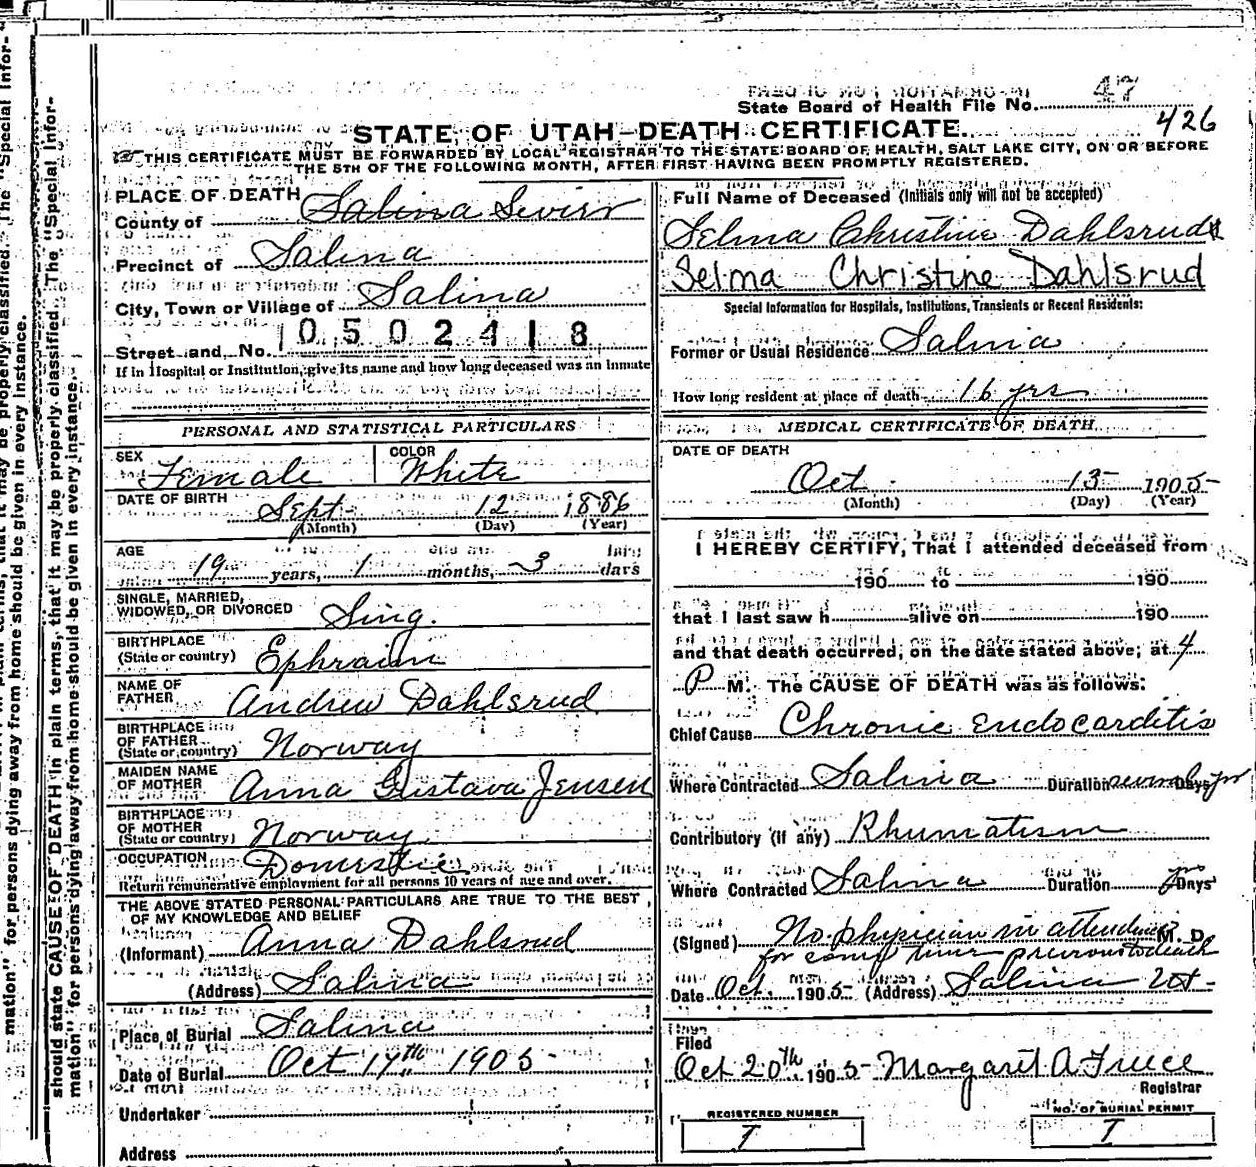 State Board of Health File No. 47
426
STATE OF UTAH—DEATH CERTIFICATE.
THIS CERTIFICATE MUST BE FORWARDED BY LOCAL REGISTRAR TO THE STATE BOARD OF HEALTH, SALT LAKE CITY, ON OR BEFORE
THE 5TH OF THE FOLLOWING MONTH, AFTER FIRST HAVING BEEN PROMPTLY REGISTERED.
PLACE OF DEATH
County of Salina Sevier
Precinct of Salina
City, Town or Village of Salina
0502418
Street and No.
If in Hospital or Institution, give its name and how long deceased was an Inmate
PERSONAL AND STATISTICAL PARTICULARS
SEX Female COLOR White
DATE OF BIRTH Sept 12 1886
(Month) (Day) (Year)
AGE 19 years, 1 months, 3 days
SINGLE, MARRIED,
WIDOWED, OR DIVORCED Sing.
BIRTHPLACE
(State or country) Ephraim
NAME OF
FATHER Andrew Dahlsrud
BIRTHPLACE
OF FATHER
(State or country) Norway
MAIDEN NAME
OF MOTHER Anna Gustava Jensen
BIRTHPLACE
OF MOTHER
(State or country) Norway
OCCUPATION Domestic
Return remunerative employment for all persons 10 years of age and over.
THE ABOVE STATED PERSONAL PARTICULARS ARE TRUE TO THE BEST
OF MY KNOWLEDGE AND BELIEF
(Informant) Anna Dahlsrud
(Address) Salina
Place of Burial Salina
Date of Burial Oct 17th 1905
Undertaker
Address
Full Name of Deceased (Initials only will not be accepted)
Selma Christine Dahlsrud
Selma Christine Dahlsrud
Special Information for Hospitals, Institutions, Transients or Recent Residents:
Former or Usual Residence Salina
How long resident at place of death 16 yrs
MEDICAL CERTIFICATE OF DEATH
DATE OF DEATH
Oct 13 1905
(Month) (Day) (Year)
I HEREBY CERTIFY, That I attended deceased from
190 to 190
that I last saw h alive on 190
and that death occurred, on the date stated above, at 4
P M. The CAUSE OF DEATH was as follows:
Chief Cause Chronic Endocarditis
Where Contracted Salina Duration several Days yrs
Contributory (if any) Rhumatism
Where Contracted Salina Duration yrs Days
(Signed) No physician in attendence M. D.
for some time previous to death
Date Oct. 1905 (Address) Salina Ut.
Filed
Oct 20th 1905 Margaret A
Registrar
REGISTERED NUMBER
I
NO. OF BURIAL PERMIT
I
should state CAUSE OF DEATH in plain terms, that it may be properly classified. The "Special Infor-
mation" for persons dying away from home should be given in every instance.